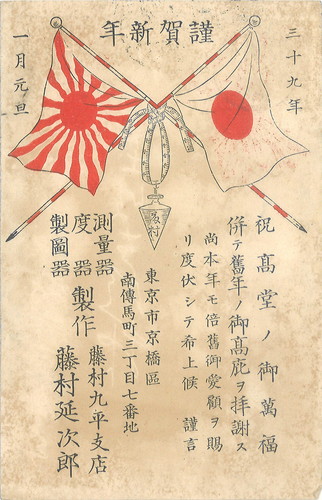 謹賀新年
三十九年
一月元旦
藤村
祝高堂ノ御萬福
併テ舊年ノ御高庇ヲ拝謝ス
尚本年モ倍舊御愛顧ヲ賜
リ度伏シテ希上候 謹言
東京市京橋區
南傳馬町三丁目七番地
測量器
度器
製圖器
製作
藤村九平支店
藤村延次郎